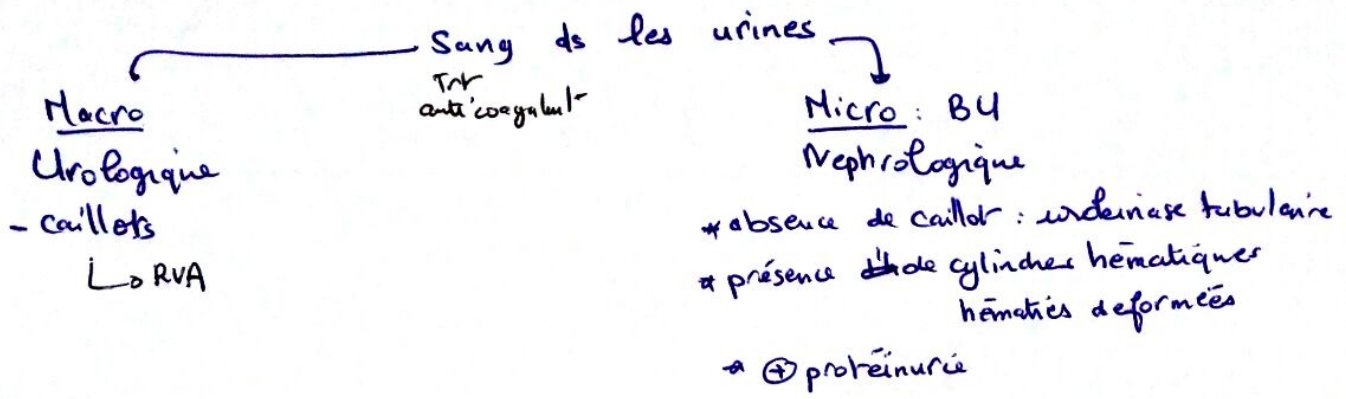 Sang ds les urines
Trt
anticoagulant
Macro
Urologique
- caillots
↳ RVA
Micro : BU
Nephrologique
* absence de caillot : urokinase tubulaire
* présence de cylindres hématiques
hématies deformées
* ⊕ protéinurie